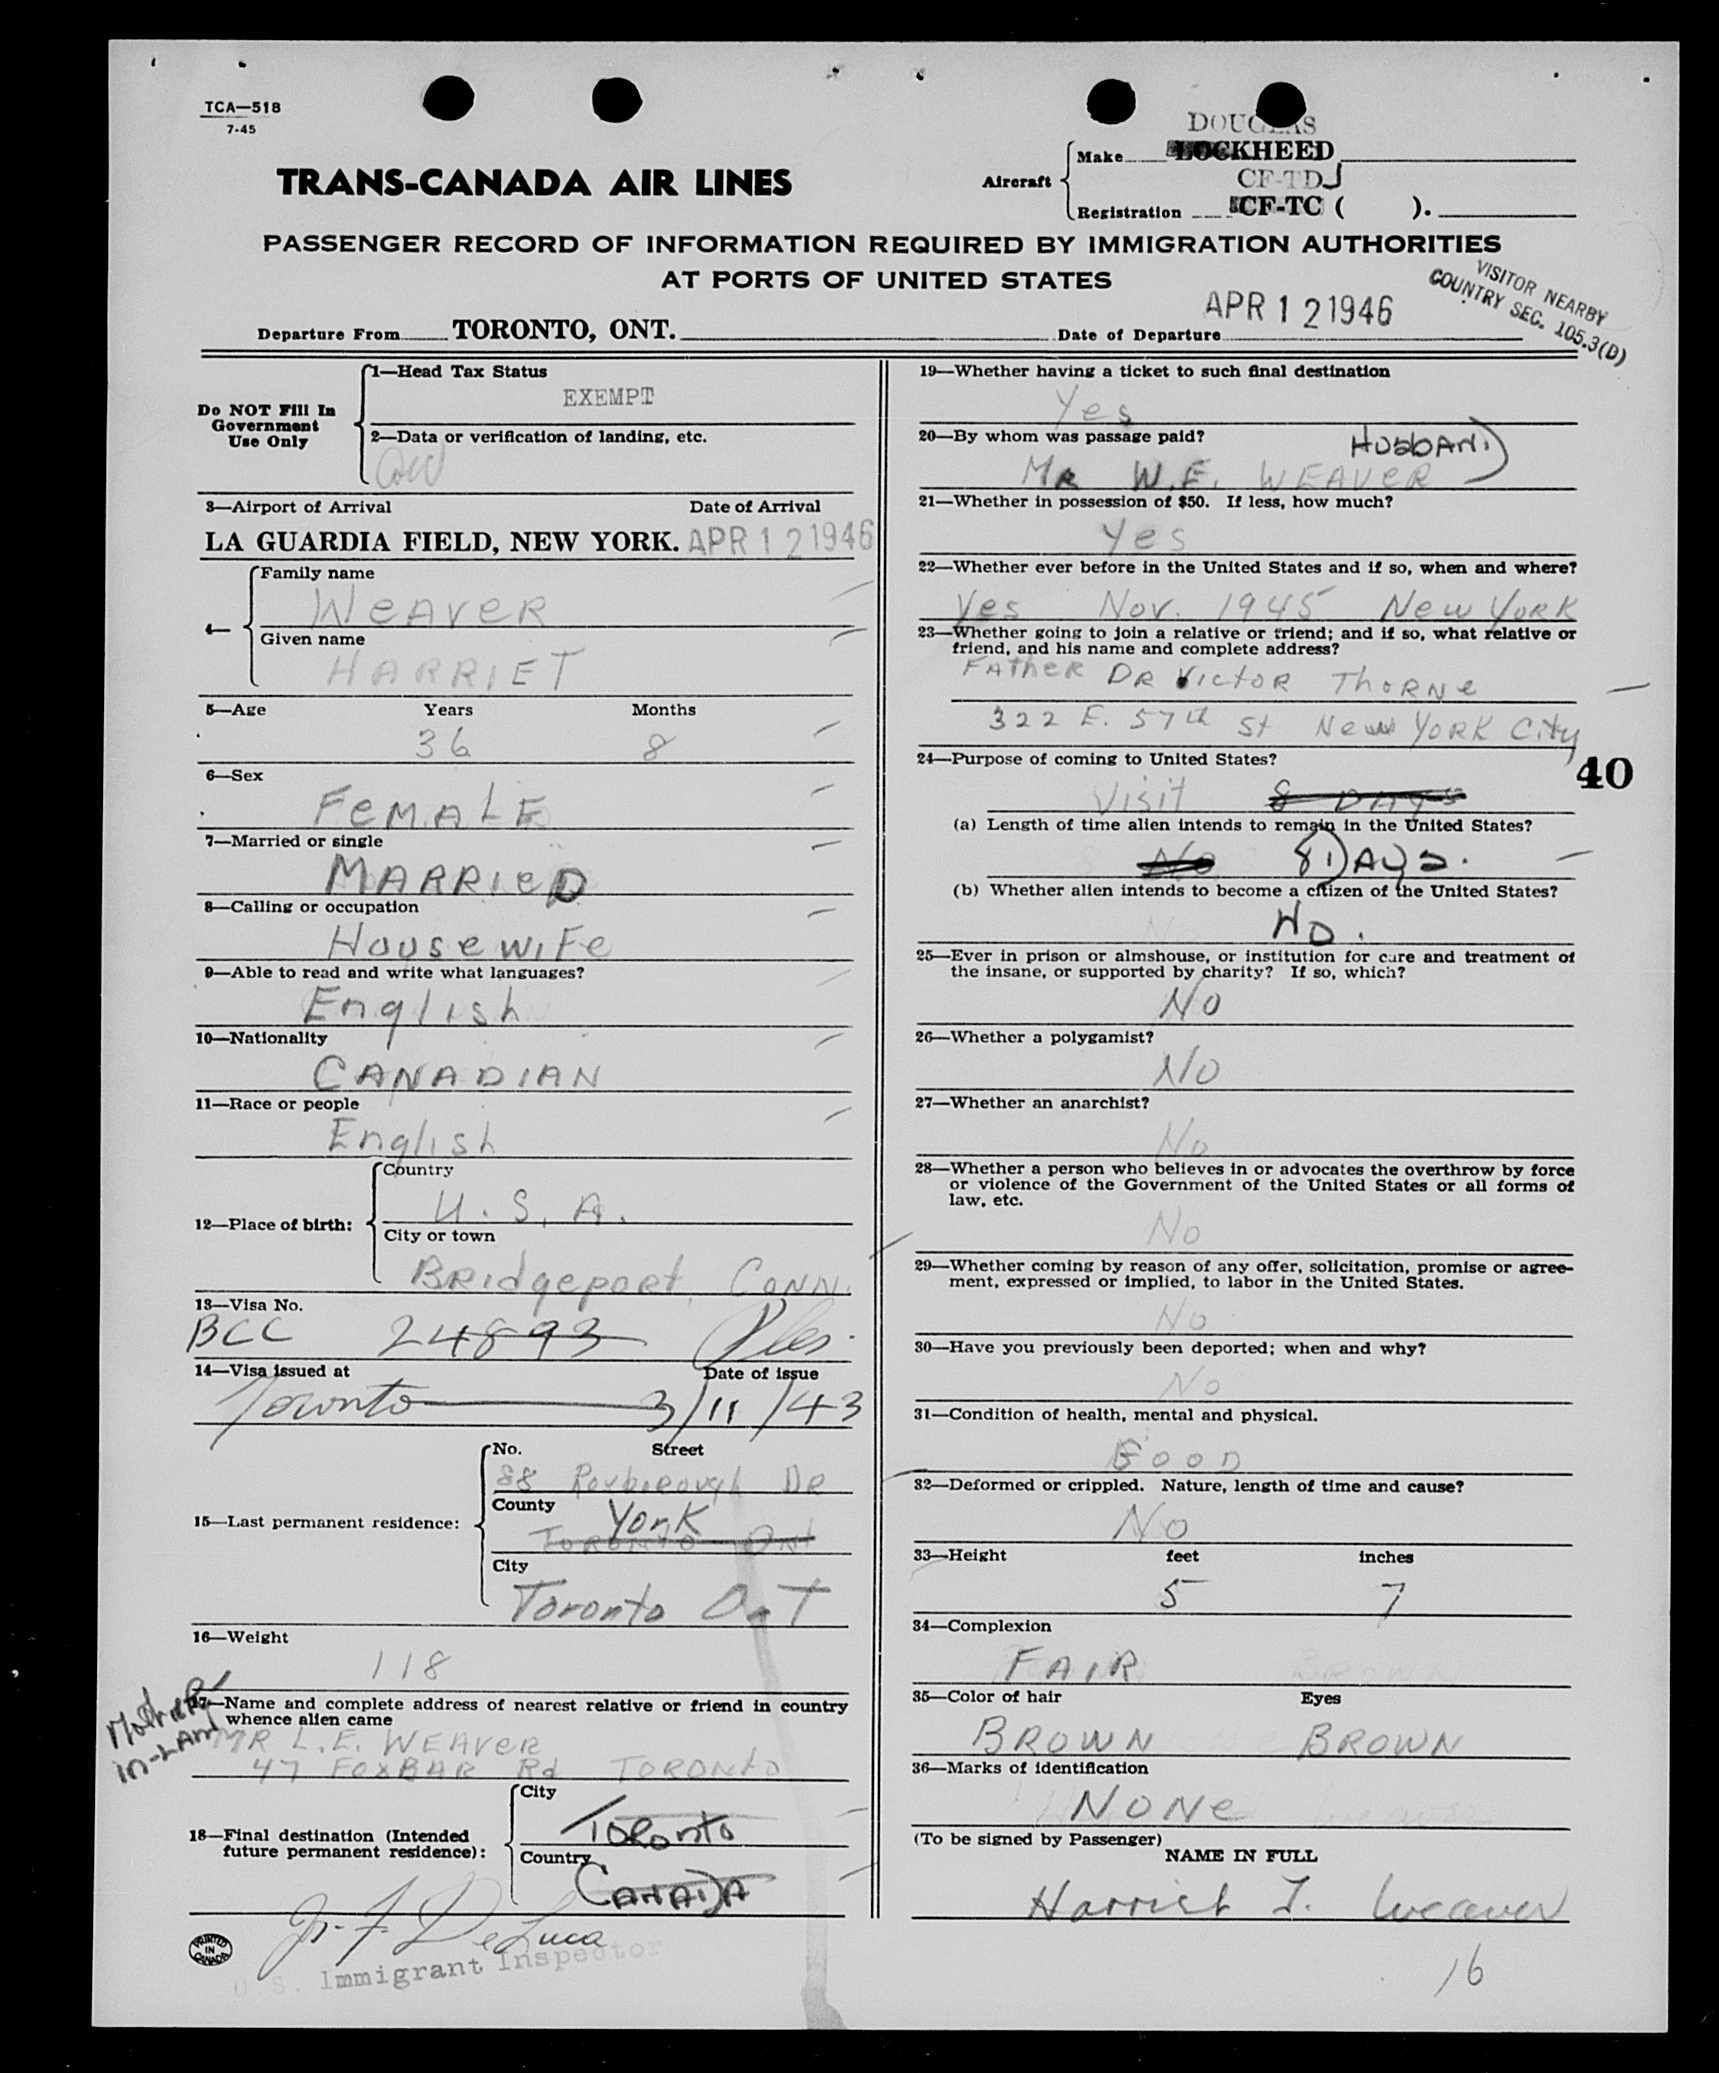 TCA—518
7-45
DOUGLAS
Aircraft
Make LOCKHEED
CF-TDJ
Registration CF-TC ( ).
TRANS-CANADA AIR LINES
PASSENGER RECORD OF INFORMATION REQUIRED BY IMMIGRATION AUTHORITIES
AT PORTS OF UNITED STATES
VISITOR NEARBY
COUNTRY SEC. 105.3(D)
APR 12 1946
Departure From TORONTO, ONT. Date of Departure
Do NOT Fill In
Government
Use Only
1—Head Tax Status
EXEMPT
2—Data or verification of landing, etc.
3—Airport of Arrival Date of Arrival
LA GUARDIA FIELD, NEW YORK. APR 12 1946
4—
Family name
WEAVER
Given name
HARRIET
5—Age Years Months
36 8
6—Sex
FEMALE
7—Married or single
MARRIED
8—Calling or occupation
Housewife
9—Able to read and write what languages?
English
10—Nationality
CANADIAN
11—Race or people
English
12—Place of birth:
Country
U.S.A.
City or town
Bridgeport, Conn.
13—Visa No.
BCC 24893
14—Visa issued at Date of issue
Toronto 3/11/43
15—Last permanent residence:
No. Street
88 Roxborough DR
County
York
Toronto Ont
City
Toronto OnT
16—Weight
118
Mother
in-LAW
17—Name and complete address of nearest relative or friend in country
whence alien came
MR L.E. WEAVER
47 FOXBAR Rd TORONTO
18—Final destination (Intended
future permanent residence):
City
Toronto
Country
CANADA
J. F. DeLuca
U.S. Immigrant Inspector
PRINTED
IN
CANADA
19—Whether having a ticket to such final destination
Yes
20—By whom was passage paid?
HUSBAND
MR W.E. WEAVER
21—Whether in possession of $50. If less, how much?
Yes
22—Whether ever before in the United States and if so, when and where?
Yes Nov. 1945 New York
23—Whether going to join a relative or friend; and if so, what relative or
friend, and his name and complete address?
Father DR Victor Thorne
322 E. 57th St New York City
24—Purpose of coming to United States?
40
Visit 8 DAYS
(a) Length of time alien intends to remain in the United States?
No 8 DAYS.
(b) Whether alien intends to become a citizen of the United States?
No.
25—Ever in prison or almshouse, or institution for care and treatment of
the insane, or supported by charity? If so, which?
No
26—Whether a polygamist?
No
27—Whether an anarchist?
No
28—Whether a person who believes in or advocates the overthrow by force
or violence of the Government of the United States or all forms of
law, etc.
No
29—Whether coming by reason of any offer, solicitation, promise or agree-
ment, expressed or implied, to labor in the United States.
No
30—Have you previously been deported; when and why?
No
31—Condition of health, mental and physical.
GOOD
32—Deformed or crippled. Nature, length of time and cause?
No
33—Height feet inches
5 7
34—Complexion
FAIR
35—Color of hair Eyes
BROWN BROWN
36—Marks of identification
NONE
(To be signed by Passenger)
NAME IN FULL
Harriet T. Weaver
16